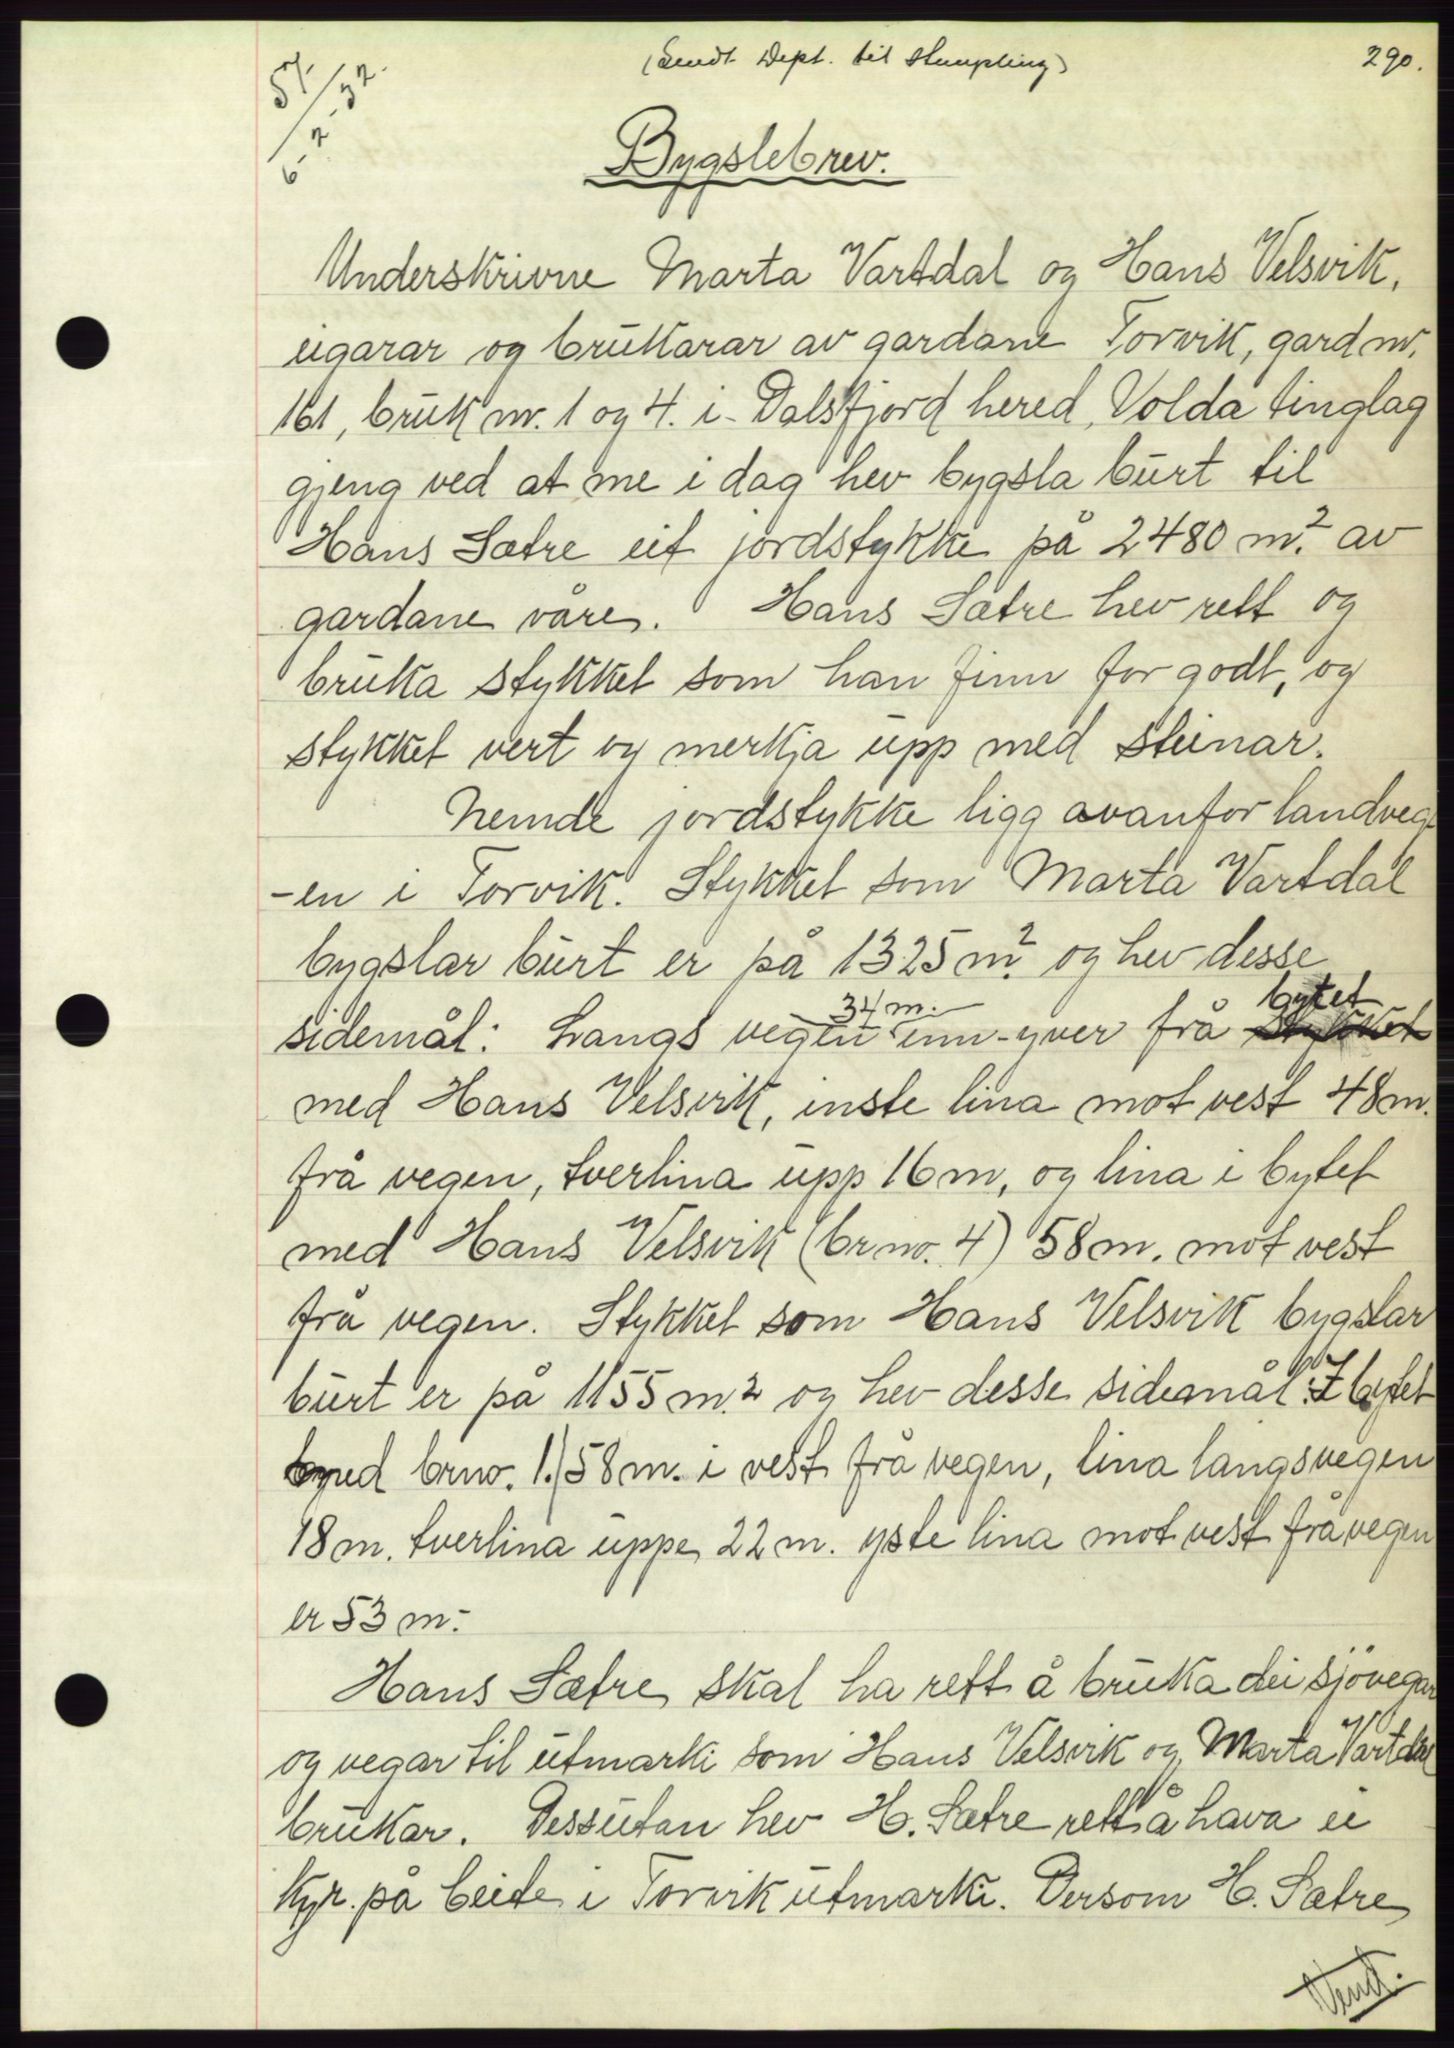 (Sendt Dept. til stempling)
290.
57/
6-2-32.
Bygslebrev.
Underskrivne Marta Vartdal og Hans Velsvik,
eigarar og brukarar av gardane Torvik, gard nr.
161, bruk nr. 1 og 4. i Dalsfjord hered, Volda tinglag
gjeng ved at me i dag hev bygsla burt til
Hans Sætre eit jordstykke på 2480 m.² av
gardane våre. Hans Sætre hev rett og
bruka stykket som han finn for godt, og
stykket vert og merkja upp med steinar.
Nemde jordstykke ligg ovanfor landveg
-en i Torvik. Stykket som Marta Vartdal
bygslar burt er på 1325 m.² og hev desse
34 m. bytet
sidemål: Langs vegen inn-yver frå stykket
med Hans Velsvik, inste lina mot vest 48 m.
frå vegen, tverlina upp 16 m, og lina i bytet
med Hans Velsvik (brno. 4) 58 m. mot vest
frå vegen. Stykket som Hans Velsvik bygslar
burt er på 1155 m.² og hev desse sidemål: I bytet
med brno. 1. 58 m. i vest frå vegen, lina langs vegen
18 m. tverlina uppe 22 m. yste lina mot vest frå vegen
er 53 m.-
Hans Sætre skal ha rett å bruka dei sjövegar
og vegar til utmarki som Hans Velsvik og Marta Vartdal
brukar. Dessutan hev H. Sætre rett å hava ei
kyr. på beite i Torvik utmarki. Dersom H. Sætre
Vend.